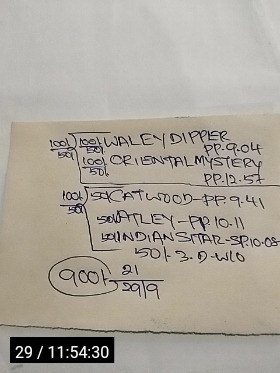 100/- 50/- 100/- 50/- WALEY DIPPER
PP. 9.04
100/- 50/- ORIENTAL MYSTERY
PP. 12.57
100/- 50/- 50/- CATWOOD - PP. 9.41
50/- ATLEY - PP. 10.11
50/- INDIAN SITAR - SP. 10.08
50/- 3. D - W/O
900/- 21
29/9
29 / 11:54:30